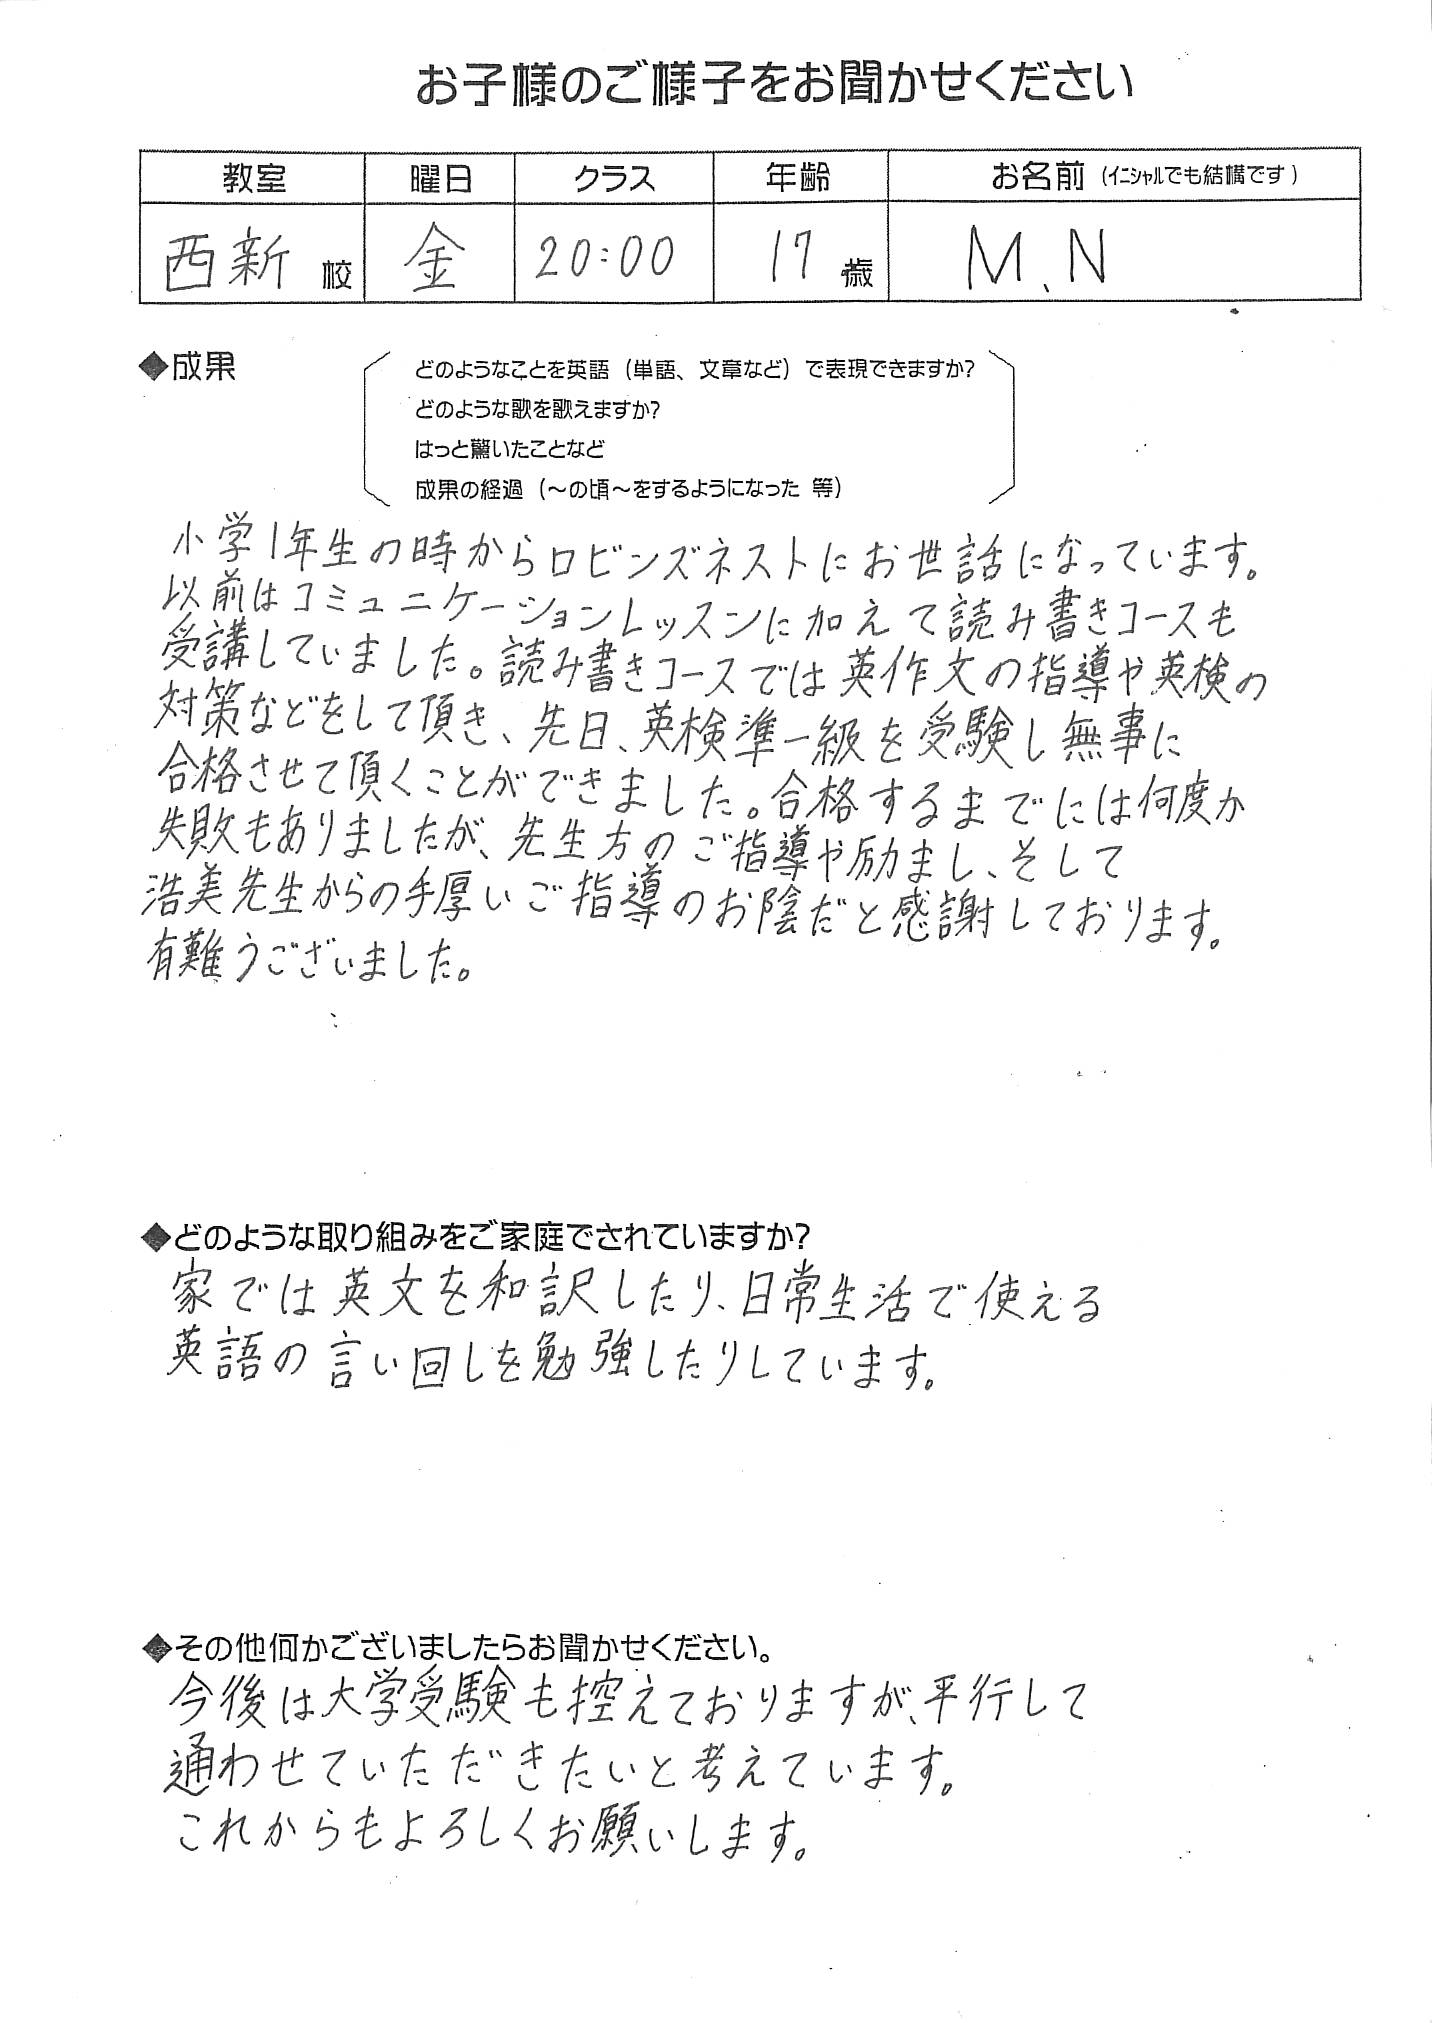 お子様のご様子をお聞かせください
教室 曜日 クラス 年齢 お名前（イニシャルでも結構です）
西新校 金 20:00 17歳 M、N
◆成果
どのようなことを英語（単語、文章など）で表現できますか?
どのような歌を歌えますか?
はっと驚いたことなど
成果の経過（～の頃～をするようになった 等）
小学1年生の時からロビンズネストにお世話になっています。
以前はコミュニケーションレッスンに加えて読み書きコースも
受講していました。読み書きコースでは英作文の指導や英検の
対策などをして頂き、先日、英検準一級を受験し無事に
合格させて頂くことができました。合格するまでには何度か
失敗もありましたが、先生方のご指導や励まし、そして
浩美先生からの手厚いご指導のお陰だと感謝しております。
有難うございました。
◆どのような取り組みをご家庭でされていますか?
家では英文を和訳したり、日常生活で使える
英語の言い回しを勉強したりしています。
◆その他何かございましたらお聞かせください。
今後は大学受験も控えておりますが、平行して
通わせていただきたいと考えています。
これからもよろしくお願いします。